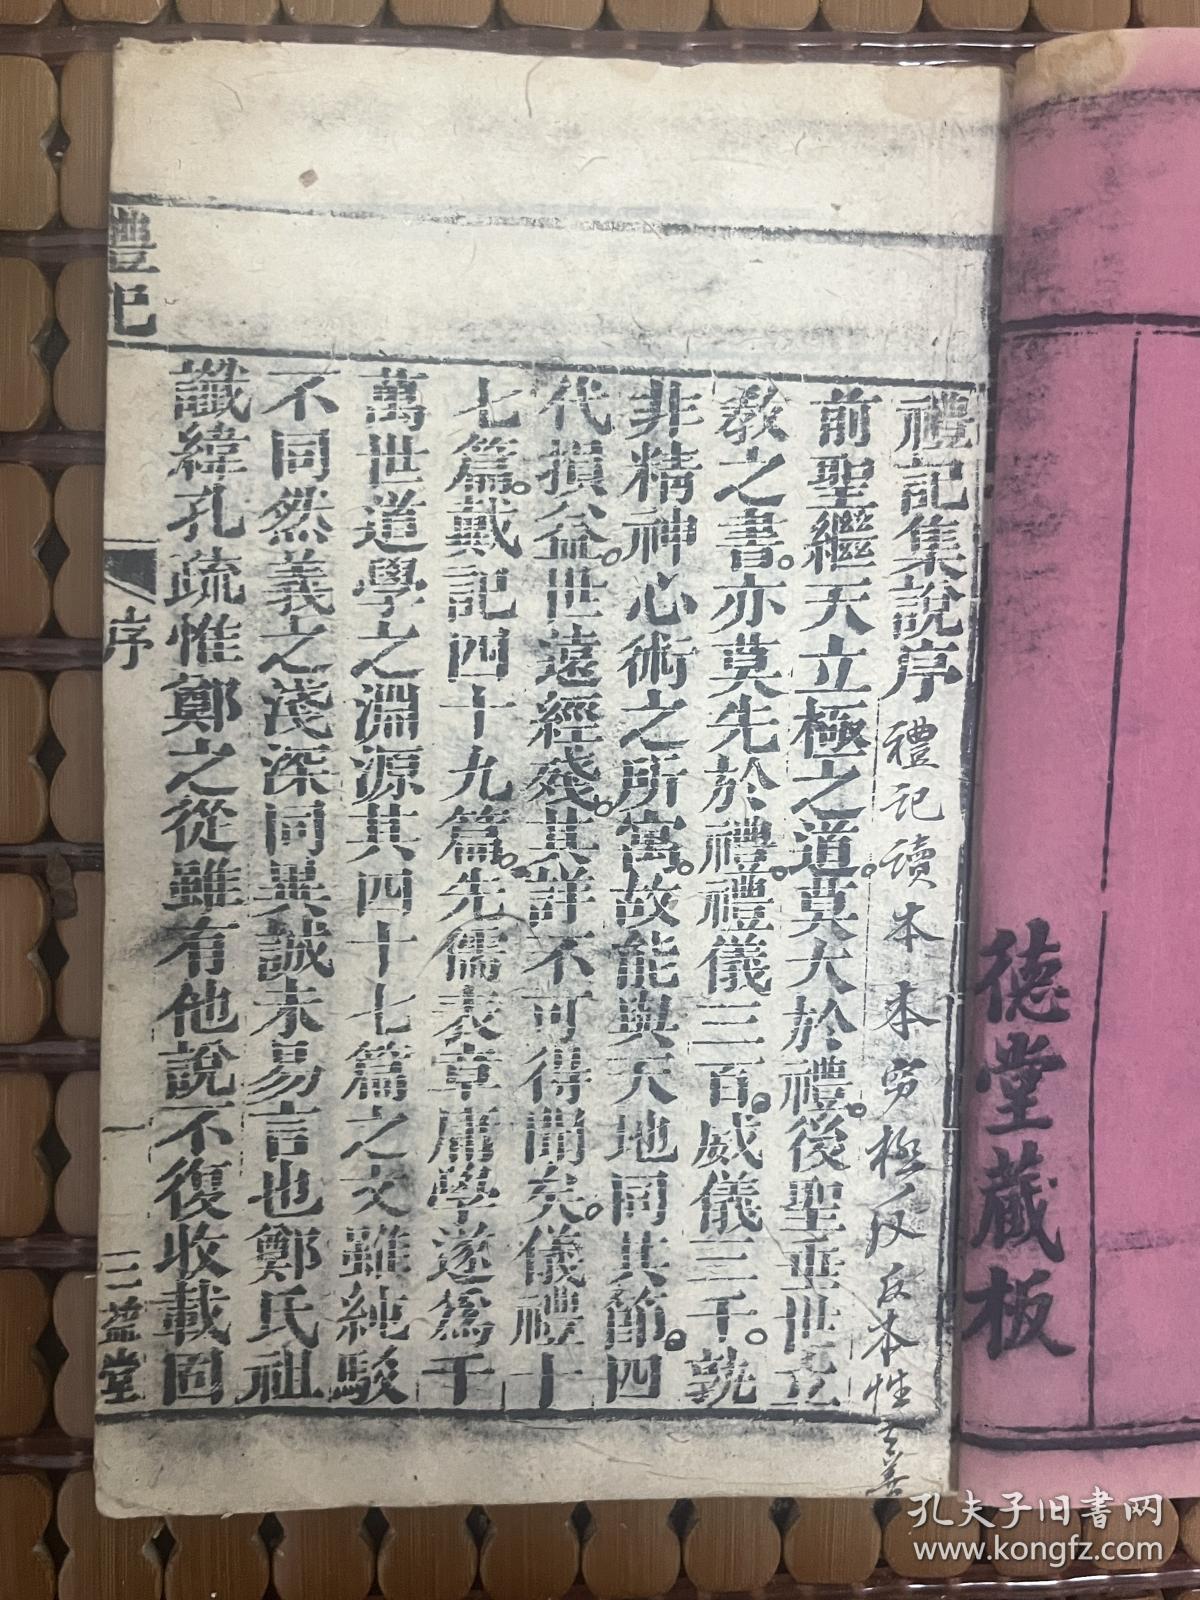 德堂藏板
禮記集說序
禮記讀本本穷極反反本性
前聖繼天立極之道。莫大於禮。後聖垂世立
教之書。亦莫先於禮。禮儀三百。威儀三千。孰
非精神心術之所寓。故能與天地同其節。四
代損益。世遠經殘。其詳不可得聞矣。儀禮十
七篇。戴記四十九篇。先儒表章庸學遂爲千
萬世道學之淵源其四十七篇之文雖純駁
不同然義之淺深同異誠未易言也鄭氏祖
讖緯孔疏惟鄭之從雖有他說不復收載固
禮記
序
一
三益堂
孔夫子旧书网
www.kongfz.com